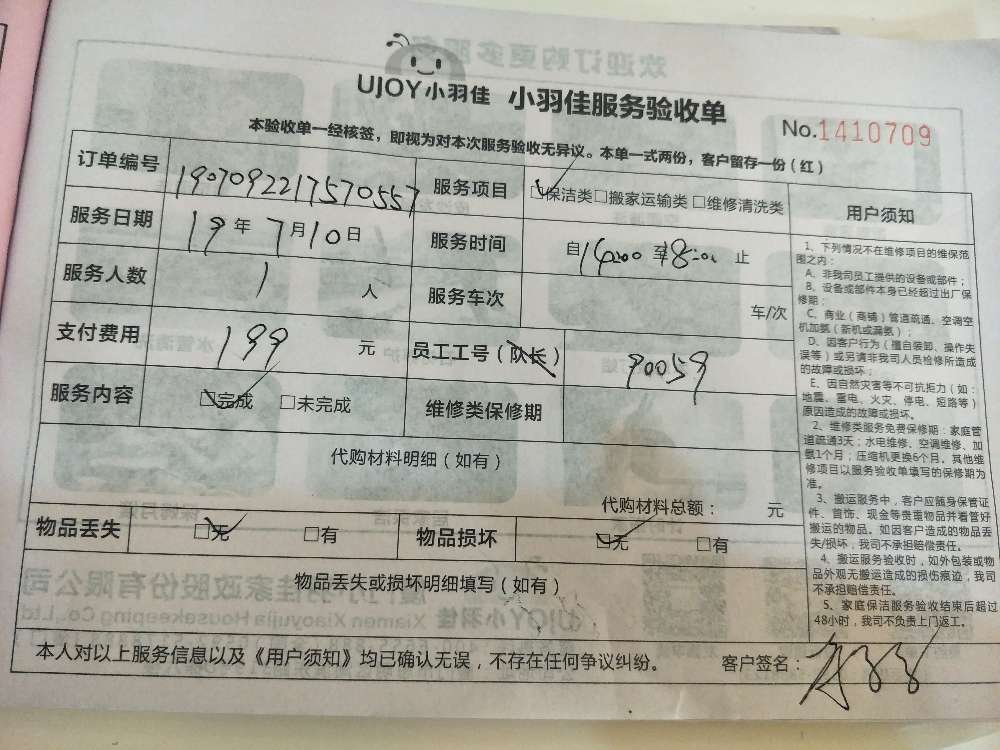 UJOY小羽佳 小羽佳服务验收单
No.1410709
本验收单一经核签，即视为对本次服务验收无异议。本单一式两份，客户留存一份（红）
订单编号 1907092217570557 服务项目 ☑保洁类□搬家运输类□维修清洗类
服务日期 19年7月10日 服务时间 自14:00至18:00止
服务人数 1 人 服务车次 车/次
支付费用 199 元 员工工号（队长） 90059
服务内容 ☑完成 □未完成 维修类保修期
代购材料明细（如有）
代购材料总额： 元
物品丢失 ☑无 □有 物品损坏 ☑无 □有
物品丢失或损坏明细填写（如有）
本人对以上服务信息以及《用户须知》均已确认无误，不存在任何争议纠纷。 客户签名：
用户须知
1、下列情况不在维修项目的维保范
围之内：
A、非我司员工提供的设备或部件；
B、设备或部件本身已经超过出厂保
修期；
C、商业（商铺）管道疏通、空调空
机加氨（新机或漏氨）；
D、因客户行为（擅自装卸、操作失
误等）或另请非我司人员检修所造成
的故障或损坏；
E、因自然灾害等不可抗拒力（如：
地震、雷电、火灾、停电、短路等）
原因造成的故障或损坏。
2、维修类服务免费保修期：家庭管
道疏通3天；水电维修、空调维修、加
氨1个月；压缩机更换6个月。其他维
修项目以服务验收单填写的保修期为
准。
3、搬运服务中，客户应随身保管证
件、首饰、现金等贵重物品并看管好
搬运的物品。如因客户造成的物品丢
失/损坏，我司不承担赔偿责任。
4、搬运服务验收时，如外包装或物
品外观无搬运造成的损伤痕迹，我司
不承担赔偿责任。
5、家庭保洁服务验收结束后超过
48小时，我司不负责上门返工。